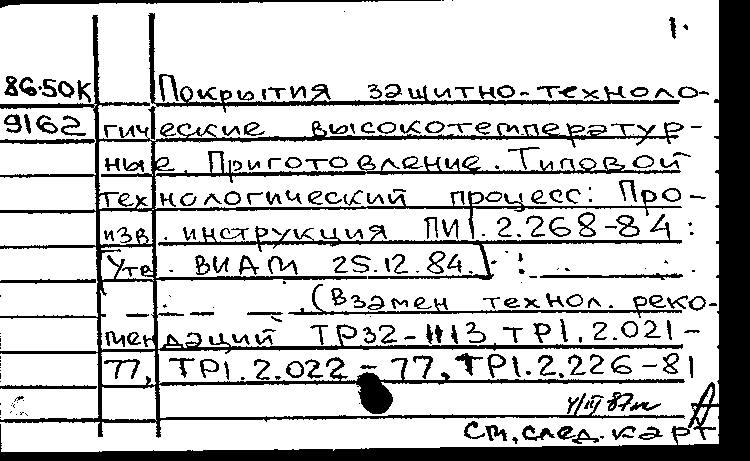 1.
86.50К Покрытия защитно-техноло-
9162 гические высокотемператур-
ные. Приготовление. Типовой
технологический процесс: Про-
изв. инструкция ПИ1.2.268-84:
[Утв. ВИАМ 25.12.84.]
(Взамен технол. реко-
мендаций ТР32-1113, ТР1.2.021-
77, ТР1.2.022-77, ТР1.2.226-81
См. след. карт